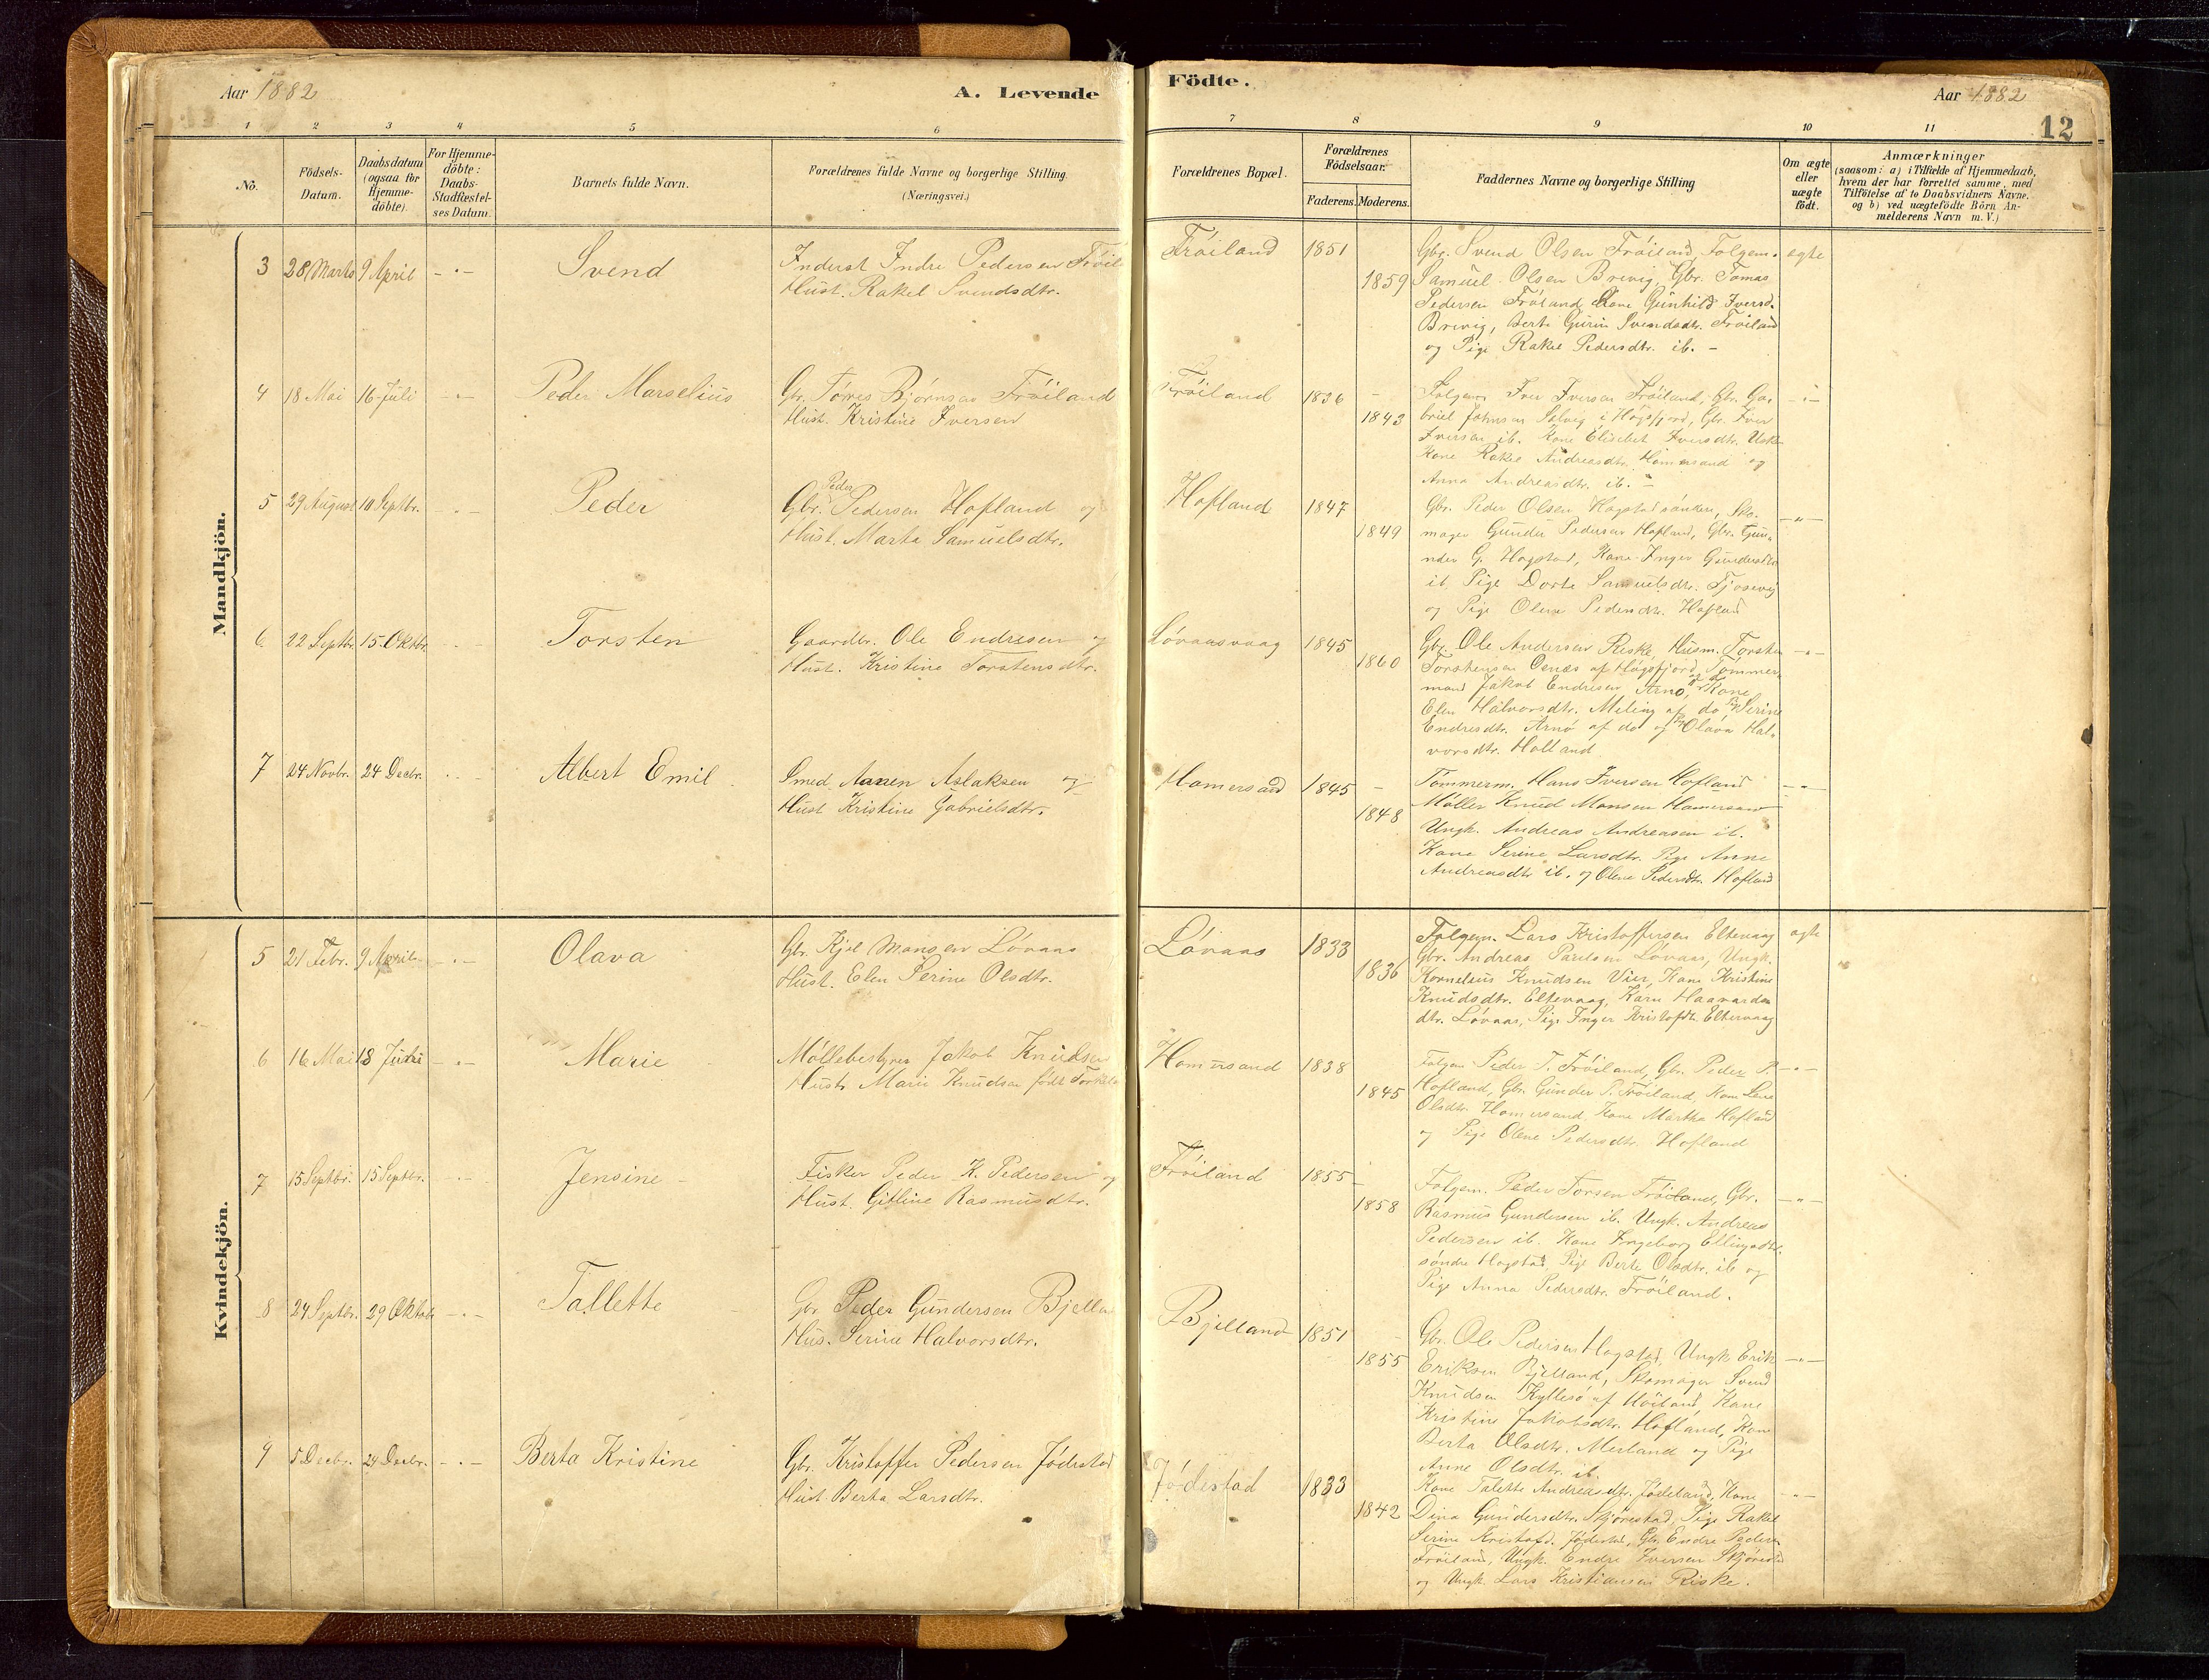 Aar 1882
A. Levende
Födte.
Aar 1882
12
1 2 3 4 5 6 7 8 9 10 11
No.
Födsels-
Datum.
Daabsdatum
(ogsaa for
Hjemme-
döbte).
For Hjemme-
döbte:
Daabs-
Stadfæstel-
ses Datum.
Barnets fulde Navn.
Forældrenes fulde Navne og borgerlige Stilling.
(Næringsvei.)
Forældrenes Bopæl.
Forældrenes
Födselsaar.
Faderens. Moderens.
Faddernes Navne og borgerlige Stilling
Om ægte
eller
uægte
födt.
Anmærkninger
(saasom: a) i Tilfælde af Hjemmedaab,
hvem der har forrettet samme, med
Tilföielse af to Daabsvidners Navne.
og b) ved uægtefödte Börn An-
melderens Navn m. V.)
Mandkjön.
3 28 Marts 9 April - " - Svend
Inderst Indre Pedersen Fröil
Hust. Rakel Svendsdtr.
Fröiland 1851
1859
Gbr. Svend Olsen Fröiland, Folgem.
Samuel Olsen Brevig, Gbr. Tomas
Pedersen Fröiland, Kone Gunhild Iversd.
Brevig, Berte Gurine Svendsdtr. Fröiland
og Pige Rakel Pedersdtr. ib. -
egte
4 18 Mai 16 Juli - " - Peder Marselius
Gbr. Törres Björnsen Fröiland
Hust. Kristine Iversen
Fröiland 1836
1843
Folgem. Iver Iversen Fröiland, Gbr. Ga-
briel Johnsen Selvig i Högsfjord, Gbr. Iver
Iversen ib. Kone Elisebet Iversdtr.
Kone Rakel Andreasdtr. Hamersand og
Anna Andreasdtr. ib. -
- " -
5 29 August 10 Septbr. - " - Peder
Peder
Gbr. Pedersen Hofland og
Hust. Marta Samuelsdtr.
Hofland 1847
1849
Gbr. Peder Olsen Hogstad söndre, Sko-
mager Gunder Pedersen Hofland, Gbr. Gun-
nder G. Hogstad, Kone Inger Gundersdtr
ib. Pige Dorte Samuelsdtr.
og Pige Olene Pedersdtr. Hofland
- " -
6 22 Septbr. 15 Oktbr. - " - Torsten
Gaardbr. Ole Endresen og
Hust. Kristine Torstensdtr.
Lövaasvaag 1845
1860
Gbr. Ole Andersen Riske, Husm. Torsten
Torstensen Osnes af Högsfjord, Tömmer-
mand Jakob Endresen Arnö, Kone
Elen Halvorsdtr. Meling af do Serine
Endresdtr. Arnö af do og Olava Hal-
vorsdtr. Holland
- " -
7 24 Novbr. 24 Decbr. - " - Albert Emil
Smed Aanen Aslaksen og
Hust Kristine Gabrielsdtr.
Hamersand 1845
1848
Tömmerm. Hans Iversen Hofland
Möller Knud Monsen Hamersand
Ungk. Andreas Andreasen ib.
Kone Serine Larsdtr. Pige Anne
Andreasdtr ib. og Olene Pedersdtr. Hofland
- " -
Kvindekjön.
5 21 Febr. 9 April - " - Olava
Gbr. Kjel Monsen Lövaas
Hust. Elen Serine Olsdtr.
Lövaas 1833
1836
Folgem. Lars Kristoffersen Eltevaag
Gbr. Andreas Paulsen Lövaas, Ungk.
Kornelius Knudsen Vier, Kone Kristine
Knudsdtr. Eltevaag, Karn Haavards
dtr. Lövaas, Pige Inger Kristofdtr. Eltevaag
egte
6 16 Mai 18 Juni - " - Marie
Möllebestyrer Jakob Knudsen
Hustr. Marie Knudsen födt Torkels
Hamersand 1838
1845
Folgem Peder T. Fröiland, Gbr. Peder P.
Hofland, Gbr. Gunder P. Fröiland, Kone Lene
Olsdtr. Hamersand, Kone Martha Hofland
og Pige Olene Pedersdtr. Hofland
- " -
7 15 Septbr. 15 Septbr. - " - Jensine -
Fisker Peder K. Pedersen og
Hust. Gitline Rasmusdtr.
Fröiland 1855
1858
Folgem. Peder Torsen Fröiland, Gbr.
Rasmus Gundersen ib. Ungk. Andreas
Pedersen ib. Kone Ingeborg Ellingsdtr.
söndre Hogstad, Pige Berte Olsdtr. ib og
Pige Anna Pedersdtr. Fröiland.
- " -
8 24 Septbr. 29 Oktob - " - Tallette
Gbr Peder Gundersen Bjella
Hus. Serine Halvorsdtr.
Bjelland 1851
1855
Gbr. Ole Pedersen Hogstad, Ungk Erik
Eriksen Bjelland, Skomager Svend
Knudsen Kyllesö af Höiland, Kone
Kristine Jakobsdtr. Hofland, Kone
Berta Olsdtr. Meiland og Pige
Anne Olsdtr. ib.
- " -
9 5 Decbr. 24 Decbr. - " - Berta Kristine
Gbr. Kristoffer Pedersen Jödestad
Hust Berta Larsdtr.
Jödestad 1833
1842
Kone Talette Andreasdtr. Jödestad, Kone
Dina Gundersdtr. Skjörestad, Pige Rakel
Serine Kristofd. Jödestad, Gbr. Endre Peders
Fröiland, Ungk. Endre Iversen Skjörestad
og Ungk. Lars Kristiansen Riske.
- " -